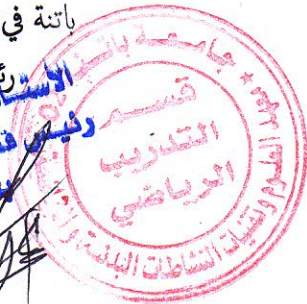 باتنة في
الأستا
رئيس ق
جامعة باتنة
قسم
التدريب
الرياضي
علوم وتقنيات النشاطات البدنية و